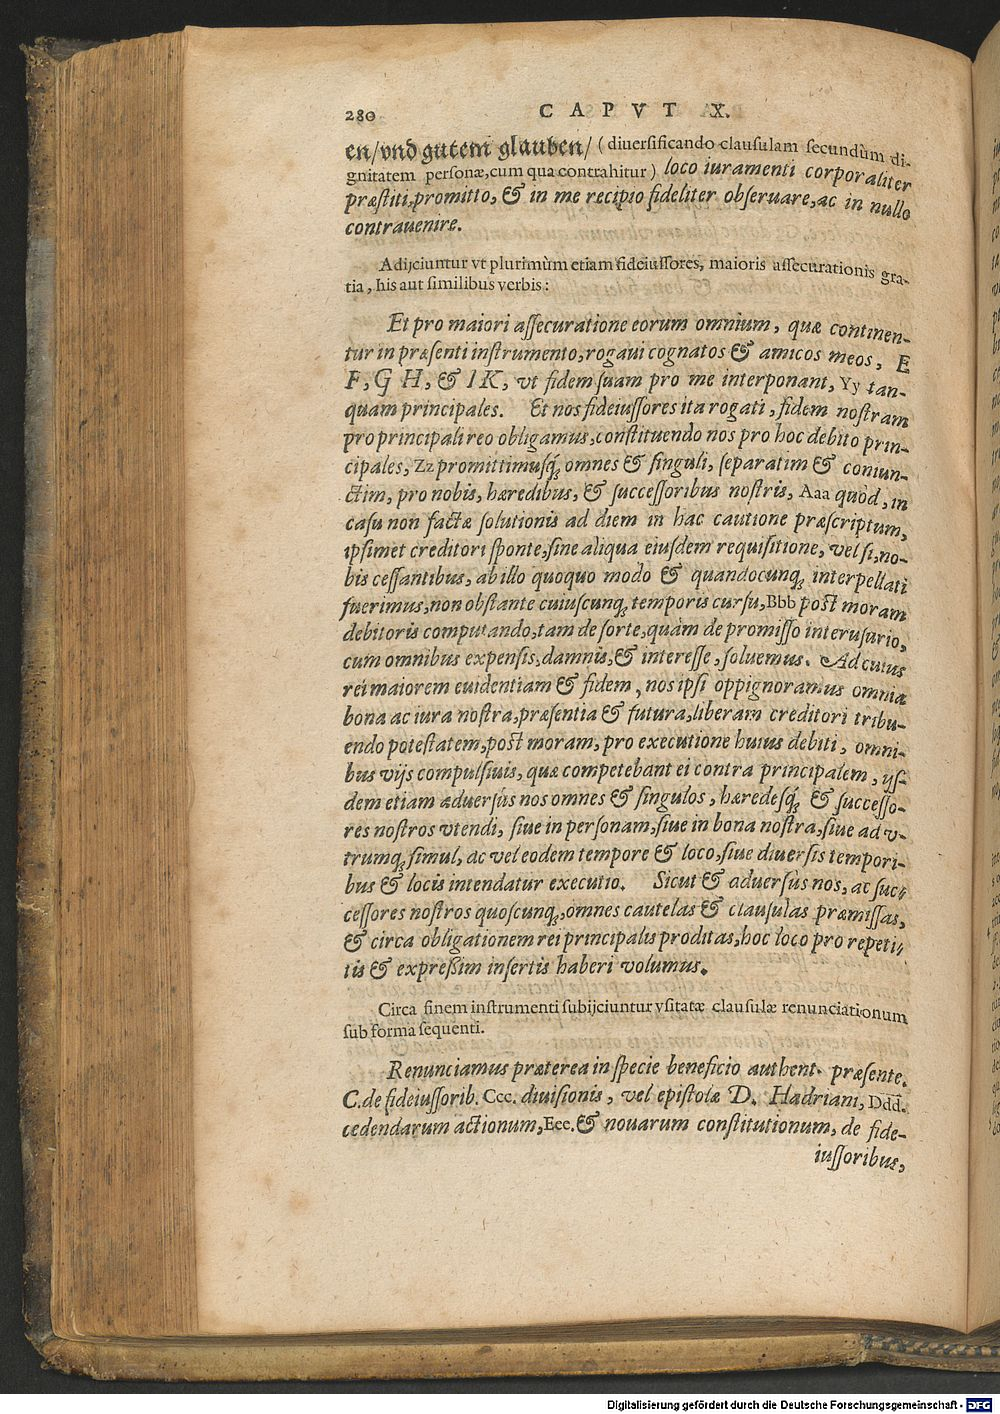 280 CAPVT X.
en/vnd gutem glauben/ (diuersificando clausulam secundùm di-
gnitatem personæ, cum qua contrahitur) loco iuramenti corporaliter
præstiti, promitto, & in me recipio fideliter obseruare, ac in nullo
contrauenire.
Adijciuntur vt plurimùm etiam fideiussores, maioris assecurationis gra-
tia, his aut similibus verbis:
Et pro maiori assecuratione eorum omnium, quæ continen-
tur in præsenti instrumento, rogaui cognatos & amicos meos, E
F, G H, & I K, vt fidem suam pro me interponant, Yy tan-
quam principales. Et nos fideiussores ita rogati, fidem nostram
pro principali reo obligamus, constituendo nos pro hoc debito prin-
cipales, Zz promittimusq́; omnes & singuli, separatim & coniun-
ctim, pro nobis, hæredibus, & successoribus nostris, Aaa quòd, in
casu non factæ solutionis ad diem in hac cautione præscriptum,
ipsimet creditori sponte, sine aliqua eiusdem requisitione, vel si, no-
bis cessantibus, ab illo quoquo modo & quandocunq; interpellati
fuerimus, non obstante cuiuscunq; temporis cursu, Bbb post moram
debitoris computando, tam de sorte, quàm de promisso interusurio,
cum omnibus expensis, damnis, & interesse, soluemus. Ad cuius
rei maiorem euidentiam & fidem, nos ipsi oppignoramus omnia
bona ac iura nostra, præsentia & futura, liberam creditori tribu-
endo potestatem, post moram, pro executione huius debiti, omni-
bus vijs compulsiuis, quæ competebant ei contra principalem, ijs-
dem etiam aduersùs nos omnes & singulos, hæredesq́; & successo-
res nostros vtendi, siue in personam, siue in bona nostra, siue ad v-
trumq; simul, ac vel eodem tempore & loco, siue diuersis tempori-
bus & locis intendatur executio. Sicut & aduersùs nos, ac suc-
cessores nostros quoscunq;, omnes cautelas & clausulas præmissas,
& circa obligationem rei principalis proditas, hoc loco pro repeti-
tis & expreßim insertis haberi volumus.
Circa finem instrumenti subijciuntur vsitatæ clausulæ renunciationum
sub forma sequenti.
Renunciamus præterea in specie beneficio authent. præsente.
C. de fideiussorib. Ccc. diuisionis, vel epistolæ D. Hadriani, Ddd.
cedendarum actionum, Eee. & nouarum constitutionum, de fide-
iussoribus,
Digitalisierung gefördert durch die Deutsche Forschungsgemeinschaft - DFG